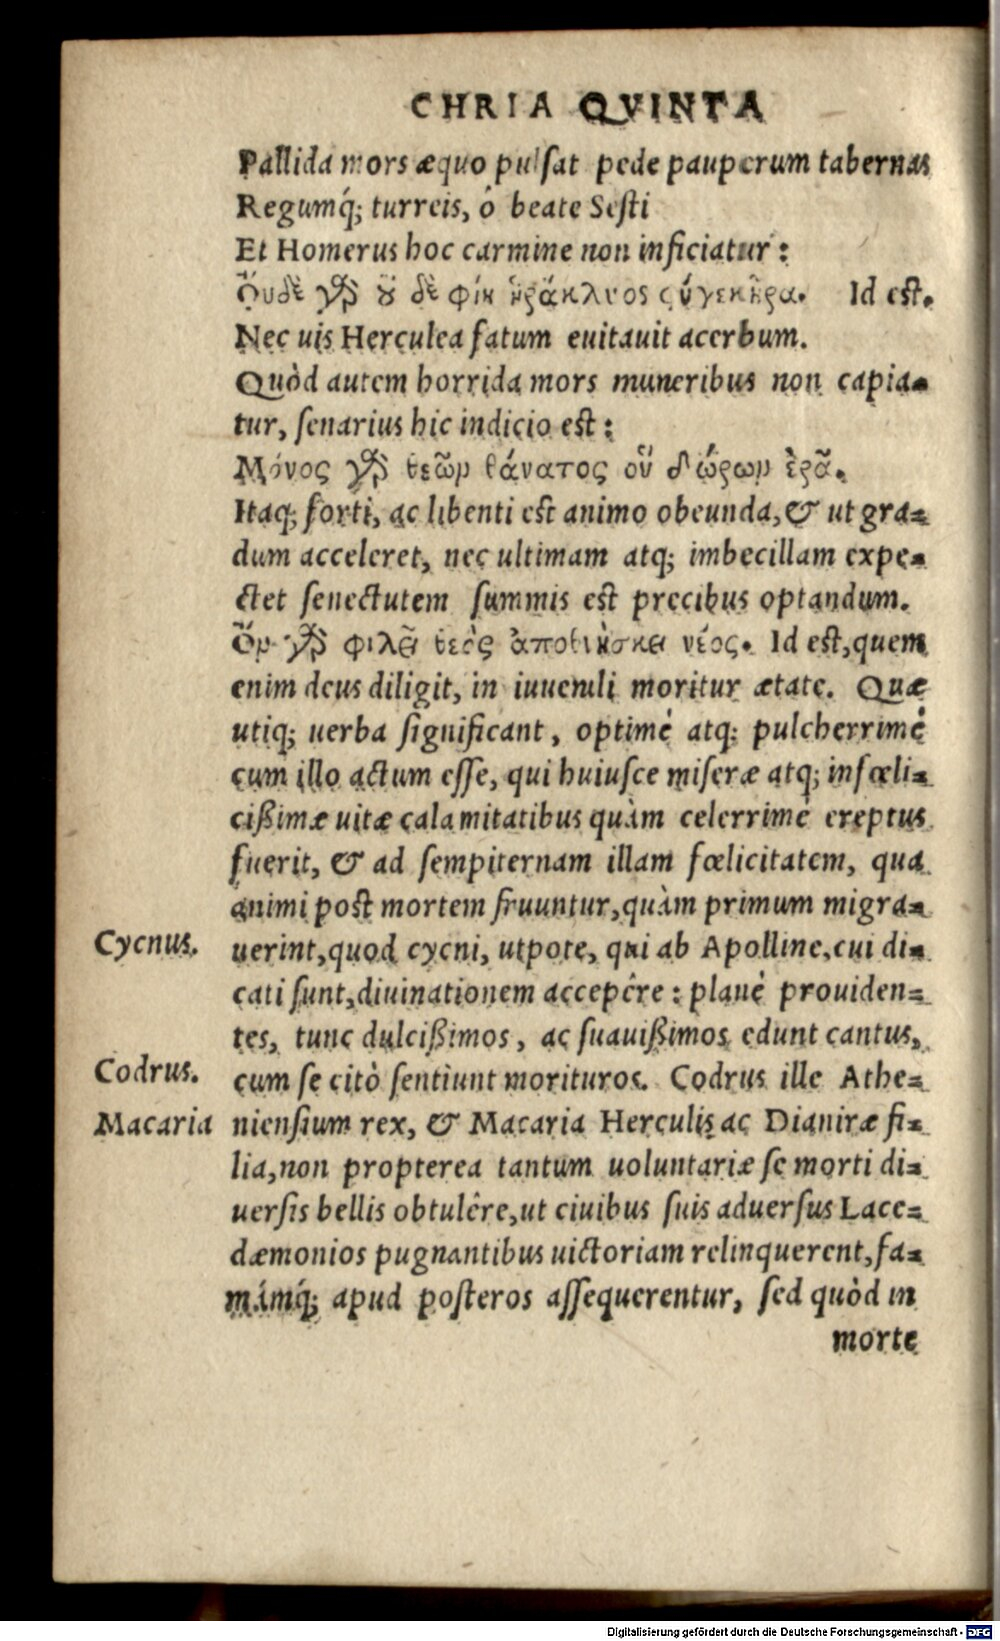 CHRIA QVINTA
Pallida mors æquo pulſat pede pauperum tabernas
Regumq́; turreis, ô beate Seſti
Et Homerus hoc carmine non inficiatur:
Ὄυδὲ γὰρ ȣ̓ δὲ φίη ἡράκληος φύγε κῆρα. Id eſt.
Nec uis Herculea fatum euitauit acerbum.
Quòd autem horrida mors muneribus non capia-
tur, ſenarius hic indicio eſt:
Μόνος γὰρ θεῶν θάνατος οὐ δώρων ἐρᾶ.
Itaq; forti, ac libenti eſt animo obeunda, & ut gra-
dum acceleret, nec ultimam atq; imbecillam expe-
ctet ſenectutem ſummis eſt precibus optandum.
Ὃν γὰρ φιλεῖ θεὸς ἀποθνήσκει νέος. Id eſt, quem
enim deus diligit, in iuuenili moritur ætate. Quæ
utiq; uerba ſignificant, optimè atq; pulcherrimè
cum illo actum eſſe, qui huiuſce miſeræ atq; infœli-
cißimæ uitæ calamitatibus quàm celerrimè ereptus
fuerit, & ad ſempiternam illam fœlicitatem, qua
animi poſt mortem fruuntur, quàm primum migra-
Cycnus.
uerint, quod cycni, utpote, qui ab Apolline, cui di-
cati ſunt, diuinationem accepêre: planè prouiden-
tes, tunc dulcißimos, ac ſuauißimos edunt cantus,
Codrus.
cum ſe citò ſentiunt morituros. Codrus ille Athe-
Macaria
nienſium rex, & Macaria Herculis ac Dianiræ fi-
lia, non propterea tantum uoluntariæ ſe morti di-
uerſis bellis obtulêre, ut ciuibus ſuis aduerſus Lace-
dæmonios pugnantibus uictoriam relinquerent, fa-
mámq́; apud poſteros aſſequerentur, ſed quòd in
morte
Digitalisierung gefördert durch die Deutsche Forschungsgemeinschaft - DFG